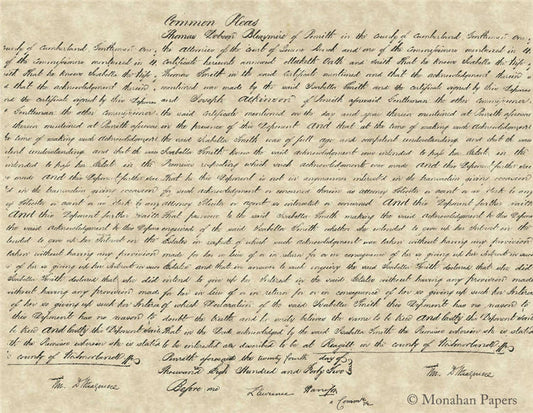 Common Pleas
Thomas Dobson of Penrith in the county of Cumberland Gentleman one of
county of Cumberland Gentleman one of the attornies of the court of Queens Bench and one of the Commissioners mentioned in the
of the Commissioners mentioned in the certificate hereunto annexed Maketh Oath and saith that he knows Isabella the Wife of
saith that he knows Isabella the Wife of Thomas Smith in the said certificate mentioned and that the acknowledgment therein
d that the acknowledgment therein mentioned was made by the said Isabella Smith and the certificate signed by this Deponent
and the certificate signed by this Deponent and Joseph Atkinson of Penrith aforesaid Gentleman the other commissioner
Gentleman the other commissioner the said certificate mentioned on the day and year therein mentioned at Penrith aforesaid
therein mentioned at Penrith aforesaid in the presence of this Deponent And that at the time of making such Acknowledgment
time of making such Acknowledgment the said Isabella Smith was of full age and competent understanding and that the said
competent understanding and that the said Isabella Smith knew the said Acknowledgment was intended to pass her Estate in the
intended to pass her Estate in the Premises respecting which such acknowledgment was made And this Deponent further saith
made And this Deponent further saith That he this Deponent is not in any manner interested in the transaction giving occasion
in the transaction giving occasion for such acknowledgment or concerned therein as attorney Solicitor or agent or as clerk to any
attorney Solicitor or agent or as clerk to any attorney Solicitor or agent so interested or concerned And this Deponent further saith
And this Deponent further saith That previous to the said Isabella Smith making the said Acknowledgment he this Deponent
the said Acknowledgment he this Deponent enquired of the said Isabella Smith whether she intended to give up her Interest in the
intended to give up her Interest in the Estates in respect of which such Acknowledgment was taken without having any provision
taken without having any provision made for her in lieu of or in return for or in consequence of her so giving up her Interest in such
of her so giving up her Interest in such Estates and that in answer to such inquiry the said Isabella Smith declared that she did
Isabella Smith declared that she did intend to give up her Interest in the said Estates without having any provision made
without having any provision made for her in lieu of or in return for or in consequence of her so giving up such her Interest
of her so giving up such her Interest of which Declaration of the said Isabella Smith this Deponent has no reason to
this Deponent has no reason to doubt the truth and he verily believes the same to be true And lastly the Deponent saith
to be true And lastly the Deponent saith That in the Deed acknowledged by the said Isabella Smith the Premises wherein she is stated
the Premises wherein she is stated to be interested are described to be at in the county of Westmorland
county of Westmorland
Penrith aforesaid the twenty fourth day of
Thousand Eight Hundred and Forty Two
Before me Lawrence Harrison
a Commr
© Monahan Papers